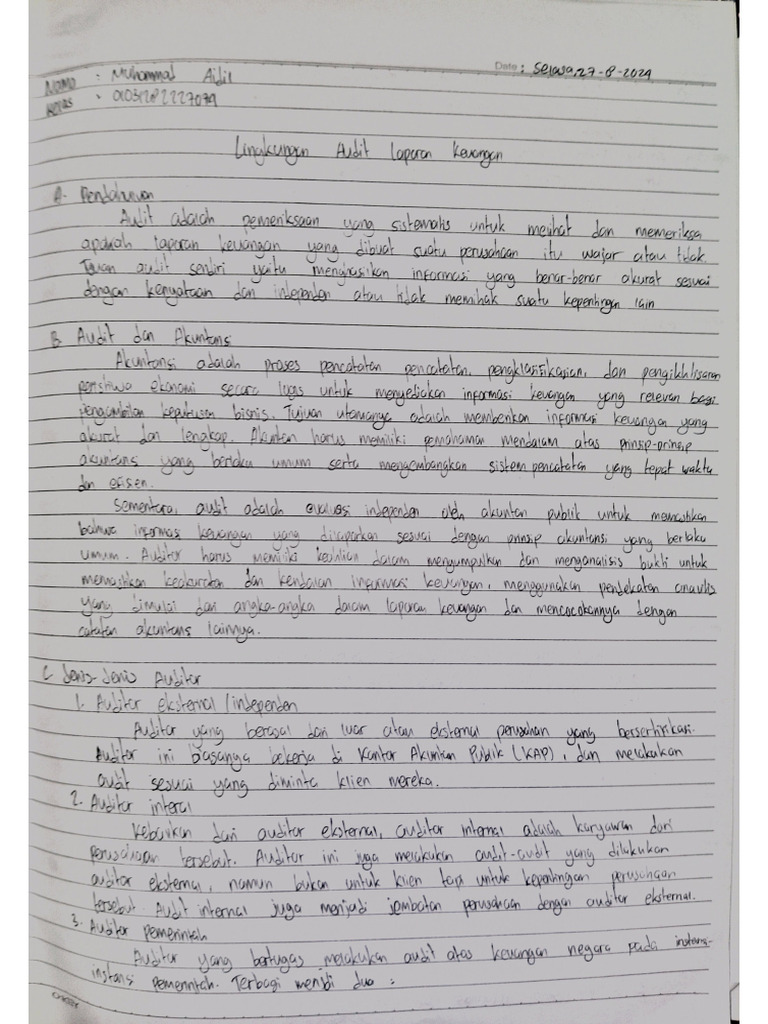 Date: Selasa, 27-8-2024
Nama : Muhammad Aidil
Kelas : 01031282227079
Lingkungan Audit Laporan Keuangan
A. Pendahuluan
Audit adalah pemeriksaan yang sistematis untuk melihat dan memeriksa
apakah laporan keuangan yang dibuat suatu perusahaan itu wajar atau tidak.
Tujuan audit sendiri yaitu menghasilkan informasi yang benar-benar akurat sesuai
dengan kenyataan dan independen atau tidak memihak suatu kepentingan lain
B. Audit dan Akuntansi
Akuntansi adalah proses pencatatan pencatatan, pengklasifikasian, dan pengikhtisaran
peristiwa ekonomi secara logis untuk menyediakan informasi keuangan yang relevan bagi
pengambilan keputusan bisnis. Tujuan utamanya adalah memberikan informasi keuangan yang
akurat dan lengkap. Akuntan harus memiliki pemahaman mendalam atas prinsip-prinsip
akuntansi yang berlaku umum serta mengembangkan sistem pencatatan yang tepat waktu
dan efisien.
Sementara, audit adalah evaluasi independen oleh akuntan publik untuk memastikan
bahwa informasi keuangan yang dilaporkan sesuai dengan prinsip akuntansi yang berlaku
umum. Auditor harus memiliki keahlian dalam mengumpulkan dan menganalisis bukti untuk
memastikan keakuratan dan keandalan informasi keuangan, menggunakan pendekatan analitis
yang dimulai dari angka-angka dalam laporan keuangan dan mencocokannya dengan
catatan akuntansi lainnya.
C. Jenis-Jenis Auditor
1. Auditor eksternal / independen
Auditor yang berasal dari luar atau eksternal perusahan yang bersertifikasi.
Auditor ini biasanya bekerja di Kantor Akuntan Publik (KAP), dan melakukan
audit sesuai yang diminta klien mereka.
2. Auditor interal
Kebalikan dari auditor eksternal, auditor internal adalah karyawan dari
perusahaan tersebut. Auditor ini juga melakukan audit-audit yang dilakukan
auditor eksternal, namun bukan untuk klien tapi untuk kepentingan perusahaan
tersebut. Audit internal juga menjadi jembatan perusahaan dengan auditor eksternal.
3. Auditor Pemerintah
Auditor yang bertugas melakukan audit atas keuangan negara pada instansi-
instansi pemerintah. Terbagi menjadi dua :